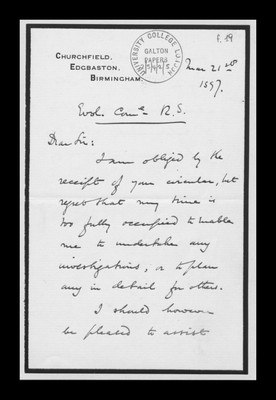 f. 59
UNIVERSITY COLLEGE
GALTON
PAPERS
CHURCHFIELD,
EDGBASTON,
BIRMINGHAM.
Mar 21st
1897.
Evol. Comee R.S.
Dear Sir:
I am obliged by the
receipt of your circular, but
regret that my time is
too fully occupied to enable
me to undertake any
investigations, or to plan
any in detail for others.
I should however
be pleased to assist